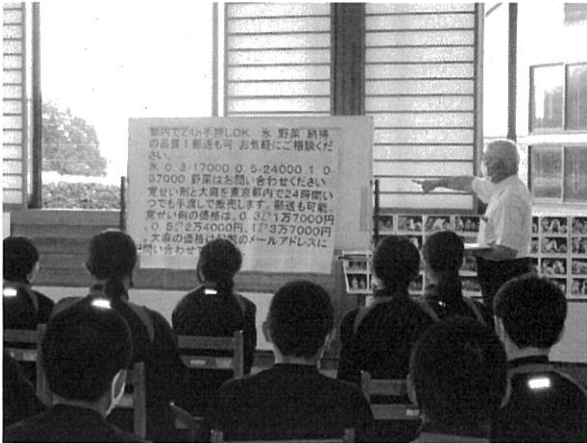 都内で24h手押しOK 氷 野菜 納得
の品質！郵送も可 お気軽にご相談くだ
さい。
氷 0.3-17000 0.5-24000 1.0-
37000 野菜はお問い合わせください
覚せい剤と大麻を東京都内で24時間い
つでも手渡しで販売します。郵送も可能。
覚せい剤の価格は、0.3㌘1万7000円
、0.5㌘2万4000円、1㌘3万7000円
。大麻の価格は のメールアドレスに
問い合わせ